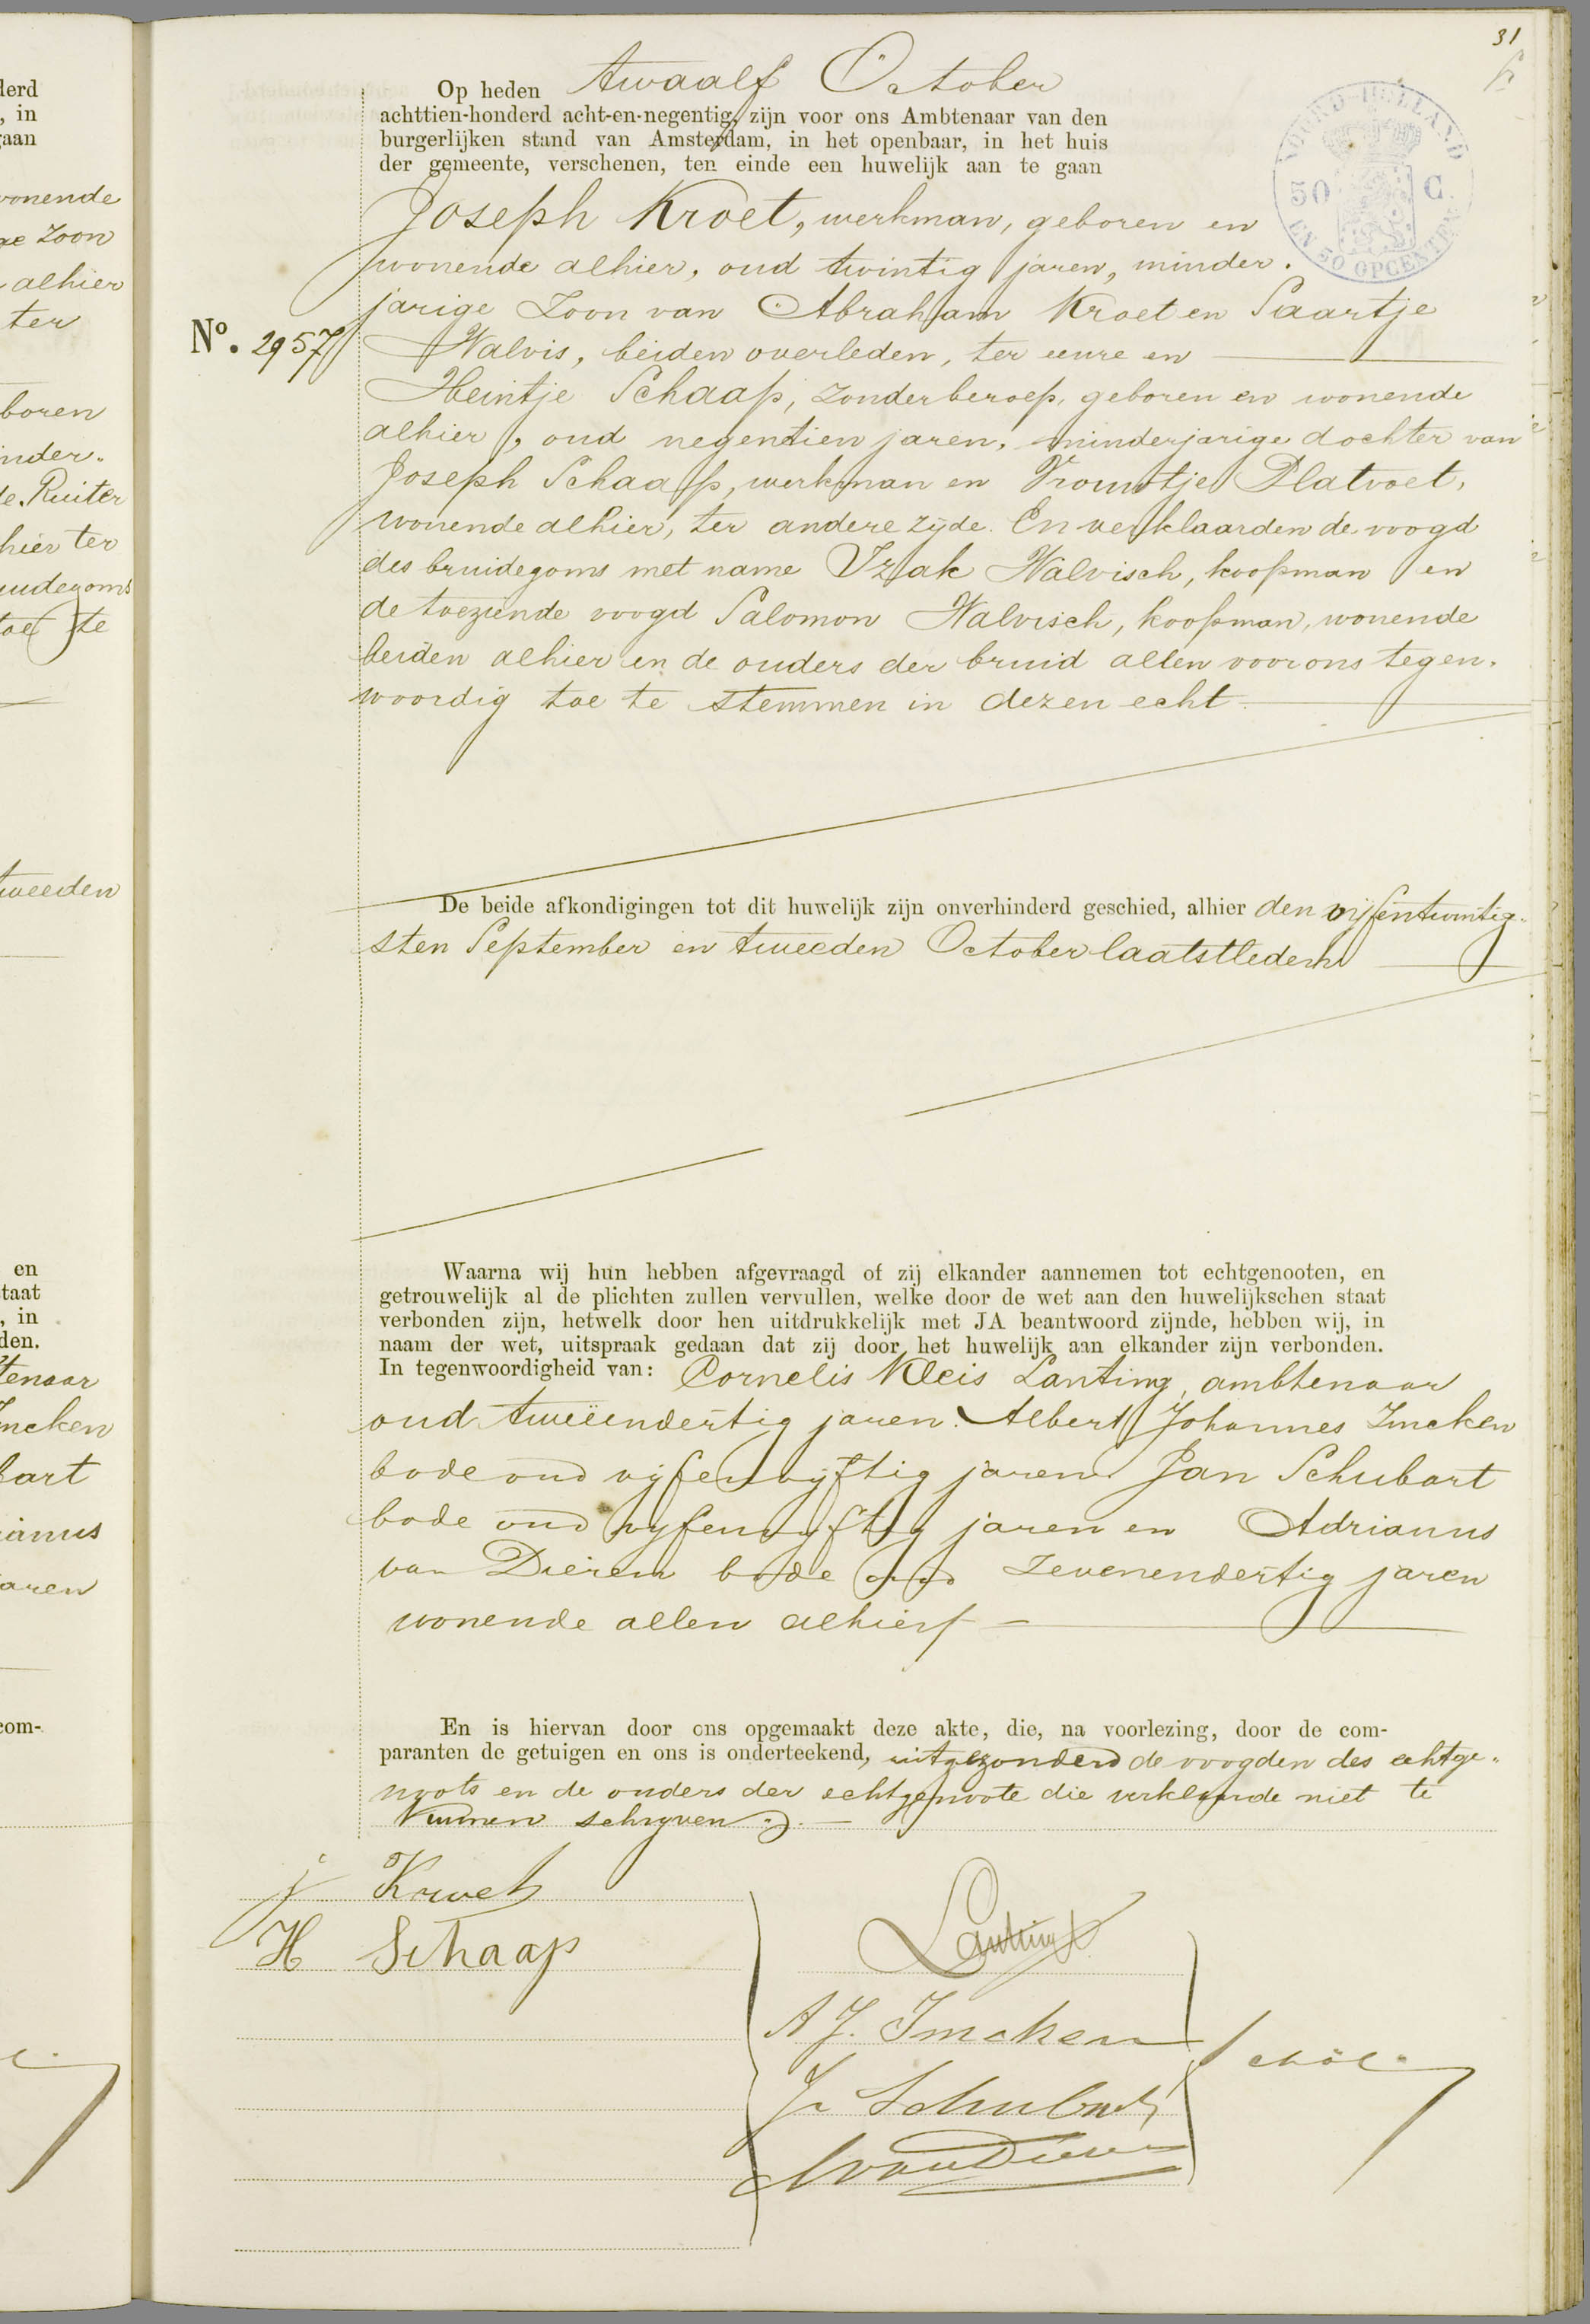 31
Op heden twaalf October
achttien-honderd acht-en-negentig, zijn voor ons Ambtenaar van den
burgerlijken stand van Amsterdam, in het openbaar, in het huis
der gemeente, verschenen, ten einde een huwelijk aan te gaan
NOORD-HOLLAND
50 C.
EN 50 OPCENTEN
Joseph Kroet, werkman, geboren en
wonende alhier, oud twintig jaren, minder.
jarige Zoon van Abraham Kroet en Saartje
No. 2957
Walvis, beiden overleden, ter eenre en
Heintje Schaap, zonder beroep, geboren en wonende
alhier, oud negentien jaren, minderjarige dochter van
Joseph Schaap, werkman en Vrouwtje Platvoet,
wonende alhier, ter andere zijde. En verklaarden de voogd
des bruidegoms met name Izak Walvisch, koopman en
de toeziende voogd Salomon Walvisch, koopman, wonende
beiden alhier en de ouders der bruid allen voor ons tegen.
woordig toe te stemmen in dezen echt.
De beide afkondigingen tot dit huwelijk zijn onverhinderd geschied, alhier den vijfentwintig.
sten September en tweeden October laatstleden
Waarna wij hun hebben afgevraagd of zij elkander aannemen tot echtgenooten, en
getrouwelijk al de plichten zullen vervullen, welke door de wet aan den huwelijkschen staat
verbonden zijn, hetwelk door hen uitdrukkelijk met JA beantwoord zijnde, hebben wij, in
naam der wet, uitspraak gedaan dat zij door het huwelijk aan elkander zijn verbonden.
In tegenwoordigheid van: Cornelis Kleis Lanting, ambtenaar
oud tweeëndertig jaren. Albert Johannes Imcken
bode oud vijfenvijftig jaren Jan Schubart
bode oud vijfenvijftig jaren en Adrianus
van Dieren bode oud zevenendertig jaren
wonende allen alhier
En is hiervan door ons opgemaakt deze akte, die, na voorlezing, door de com-
paranten de getuigen en ons is onderteekend, uitgezonderd de voogden des echtge.
noots en de ouders der echtgenoote die verklaarde niet te
kunnen schrijven.
j Kroet
H Schaap
Lanting
A J. Imcken
J. Schubart
A van Dieren